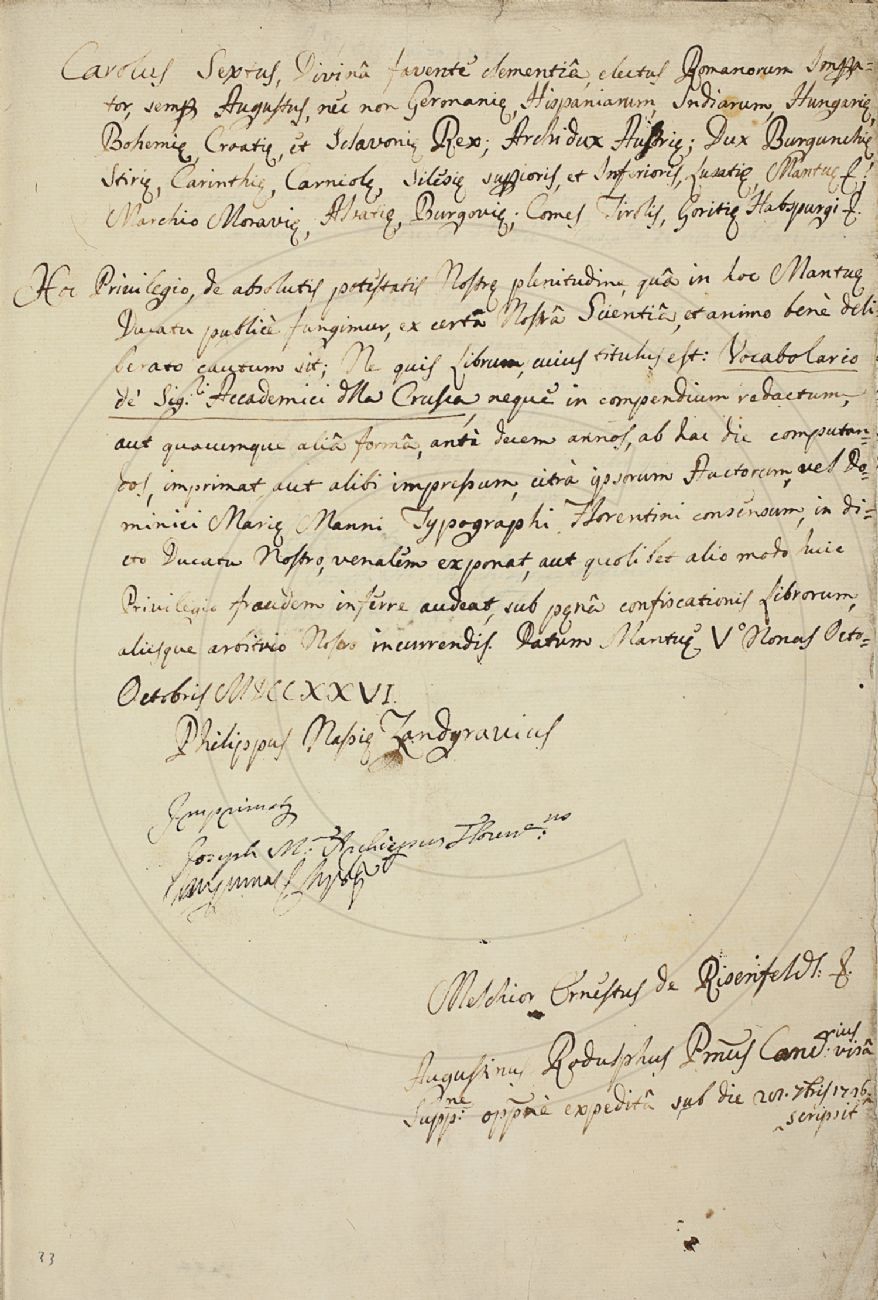 Carolus Sextus, Divinâ favente clementiâ, electus Romanorum Impa=
tor, semp Augustus, nec non Germanię, Hispaniarum, Indiarum, Hungarię,
Bohemię, Croatię, et Sclavonię Rex; Archidux Austrię; Dux Burgundię
Stirię, Carinthię, Carniolę, Silesię suppioris, et Inferioris, Lusatię, Mantuę &!
Marchio Moravię, Alsatię, Burgovię; Comes Tirolis, Goritię Habspurgi &.
Hoc Privilegio, de absolutis potestatis Nostrę plenitudine, quâ in hoc Mantuę
Ducatu publicè fungimur, ex certâ Nostrâ Scientiâ, et animo benè deli
berato cautum sit; Ne quis Librum, cuius titulus est: Vocabolario
de' Sig.ri Accademici dlla Crusca, neque in compendium redactum,
aut quacumque aliâ formâ, antè decem annos, ab hac die computan=
dos, imprimat aut alibi impressum, citrà ipsorum Auctorum, vel Do=
minici Marię Manni Typographi Florentini consensum, in di=
cto Ducatu Nostro, venalem exponat, aut quolibet alio modo huic
Privilegio fraudem inferre audeat, sub pęnâ confiscationis Librorum,
aliisque arbitrio Nostro incurrendis. Datum Mantuę V° Nonas Octo=
Octobris MDCCXXVI.
Philippus Zandgravius
Imprimatur
Joseph M.a Floren.nus
Melchior Ernestus de Risenfeldt. &.
Augustinus Rodulphus Pmus Canc.rius visâ
Supp.ne oppnè expeditâ sub die 7bris 1726
scripsit
33